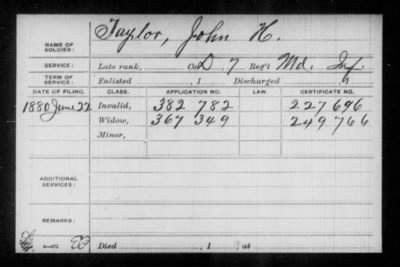 NAME OF SOLDIER: Taylor, John H.
SERVICE: Late rank, Co. D, 7 Reg't Md. Inf
TERM OF SERVICE: Enlisted , 1 Discharged , 1
DATE OF FILING. CLASS. APPLICATION NO. LAW. CERTIFICATE NO.
1880 June 22 Invalid, 382 782 227 696
Widow, 367 349 249 766
Minor,
ADDITIONAL SERVICES:
REMARKS:
Died , 1 at